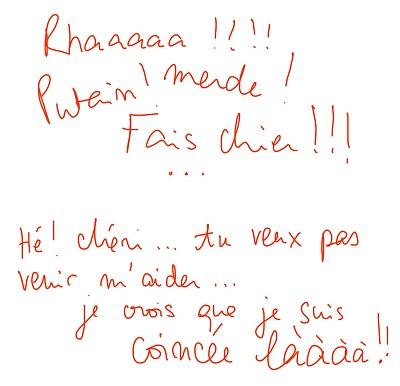 Rhaaaaa !!!!
Putain ! merde !
Fais chier !!!
...
Hé ! chéri ... tu veux pas
venir m'aider ...
je crois que je suis
coincée làààà !!